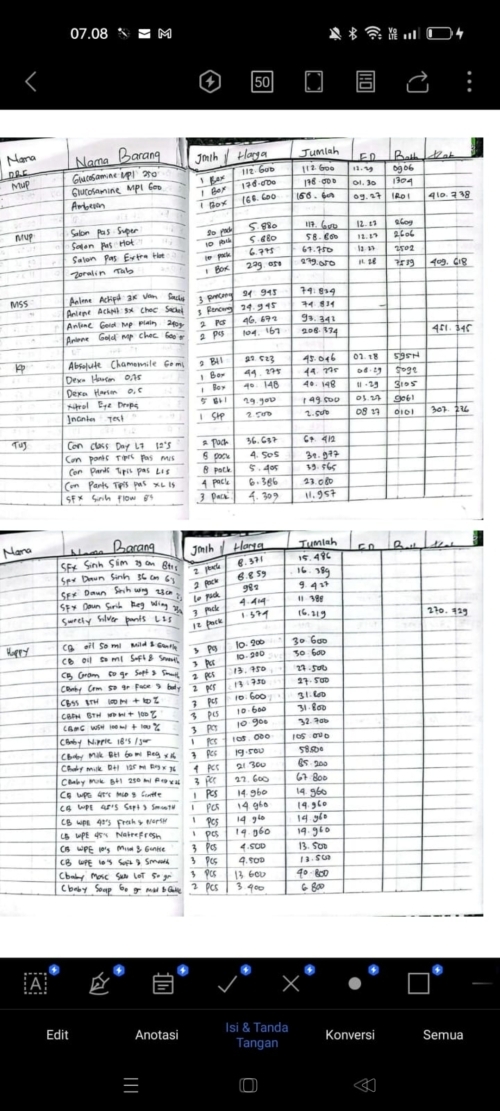 07.08
50
Nama Nama Barang Jmlh Harga Jumlah ED
MUP Glucosamine Mpl 250 1 Box 112.600 112.600 12.29 0906
Glucosamine Mpl 600 1 Box 178.000 178.000 01.30 1704
Ambeven 1 Box 168.600 09.27 1R01 410.738
MUP Salon Pas Super 20 pack 5.880 117.600 12.27 2609
Salon Pas Hot 10 pack 5.880 58.800 12.27 2606
Salon Pas Extra Hot 10 pack 6.775 67.750 12.27 2502
1 Box 229.050 229.050 11.28 7533 409.618
MSS Anlene Actifit 3x Van Sachet 3 Renceng 24.945 74.834
Anlene Actifit 3x Choc Sachet 3 Renceng 24.945 74.834
Anlene Gold Mp Plain 240gr 2 Pcs 46.672 93.342
Anlene Gold Mp Choc 600gr 2 Pcs 104.167 208.334 451.345
KP Absolute Chamomile 60 ml 2 Btl 22.523 45.046 03.28 595N
Dexa Harsen 0,75 1 Box 44.275 44.275 08.29 5092
Dexa Harsen 0,5 1 Box 40.148 40.148 11.29 3105
Eye Drops 5 Btl 29.900 149.500 03.27 9061
Test 1 Stp 2.500 2.500 08 27 0101 307.276
TUJ Con class Day L7 12's 2 pack 36.687 67.412
Con pants Tipis Pas M15 8 pack 4.505 32.977
Con Pants Tipis Pas L15 8 pack 5.405 39.565
Con Pants Tipis Pas XL 15 4 pack 6.386 23.080
SFX Sirih Flow 8's 3 pack 4.309 11.957
Nama Nama Barang Jmlh Harga Jumlah ED
SFX Sirih Slim 23 cm 8's 2 pack 8.371 15.486
SFX Daun Sirih 36 cm 6's 2 pack 8.859 16.389
SFX Daun Sirih Wing 23 cm 10 pack 982 9.427
SFX Daun Sirih Reg Wing 3 pack 4.414 11.388
Surety Silver pants L15 12 pack 1.574 16.219 270.729
Happy CB oil 50 ml Mild & Gentle 3 Pcs 10.200 30.600
CB Oil 50 ml Soft & Smooth 3 Pcs 10.200 30.600
CB Cream 50 gr Soft & Smooth 2 pcs 13.750 27.500
CBaby Crm 50 gr Face & body 2 pcs 13.750 27.500
BTH 100 ml + 100% 3 Pcs 10.600 31.800
BTH 100 ml + 100% 3 Pcs 10.600 31.800
100 ml + 100% 3 Pcs 10 900 32.700
CBaby Nipple 1 Pcs 105.000 105.000
CBaby Milk Btl 60 ml Reg x 36 3 Pcs 19.500 58500
CBaby milk Btl 125 ml Reg x 36 4 Pcs 21.300 85.200
CBaby Milk Btl 250 ml Reg x 36 3 Pcs 22.600 67.800
CB WPE 45's Mild & Gentle 1 Pcs 14.960 14.960
CB WPE 45's Soft & Smooth 1 Pcs 14.960 14.960
CB WPE 40's Fresh & Nurish 1 Pcs 14.960 14.960
CB WPE 45's Naturefresh 1 Pcs 14.960 14.960
CB WPE 10's Mild & Gentle 3 Pcs 4.500 13.500
CB WPE 10's Soft & Smooth 3 Pcs 4.500 13.500
CBaby Mosc 50 gr 3 Pcs 13 600 40.800
CBaby Soap 60 gr Mild & Gentle 2 Pcs 3.400 6.800
Edit
Anotasi
Isi & Tanda
Tangan
Konversi
Semua